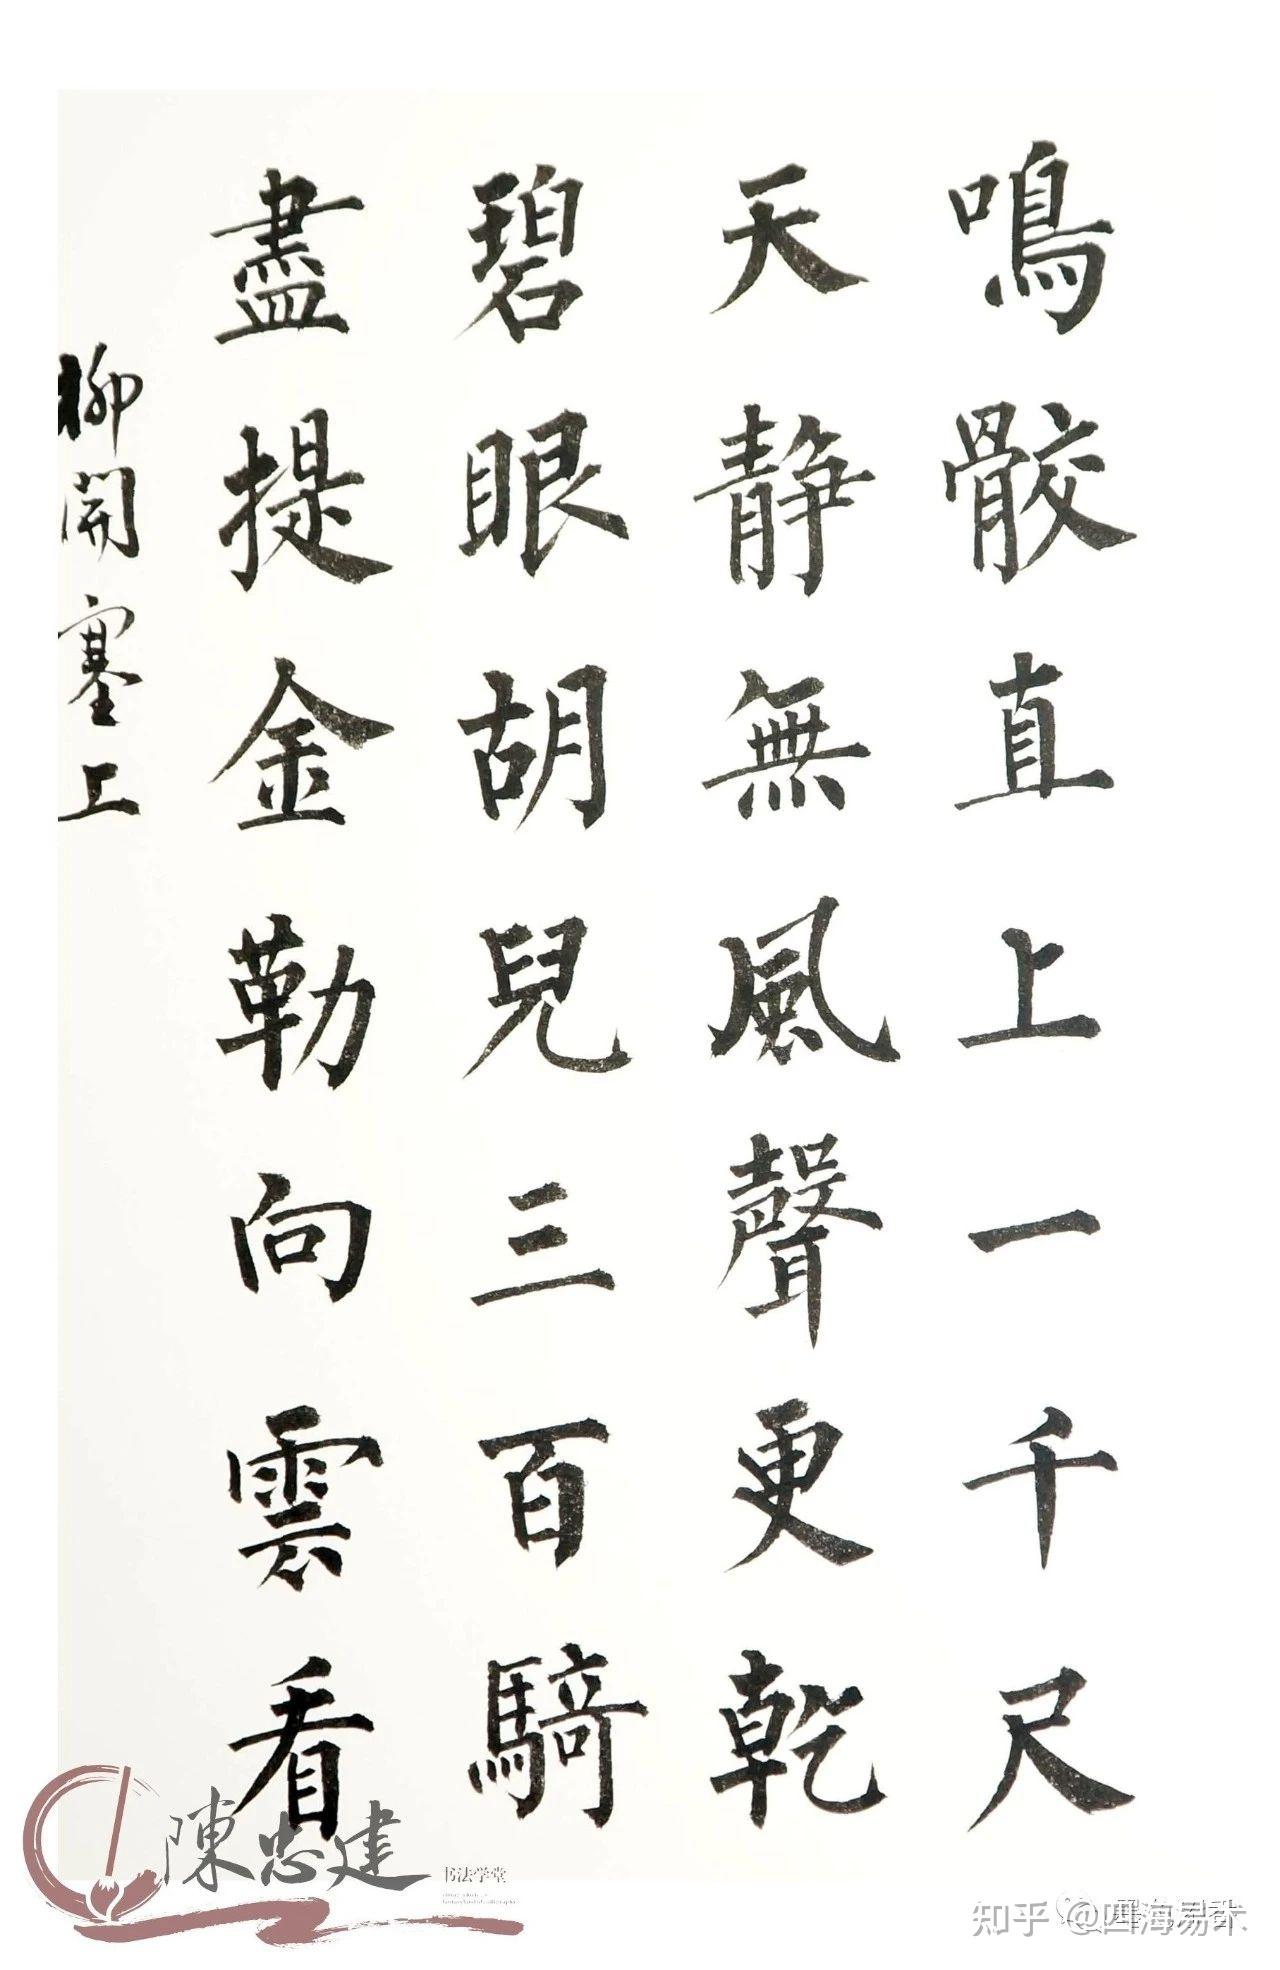 鳴骹直上一千尺
天静無風聲更乾
碧眼胡兒三百騎
盡提金勒向雲看
柳開塞上
陳忠建
书法学堂
知乎 @四海易术